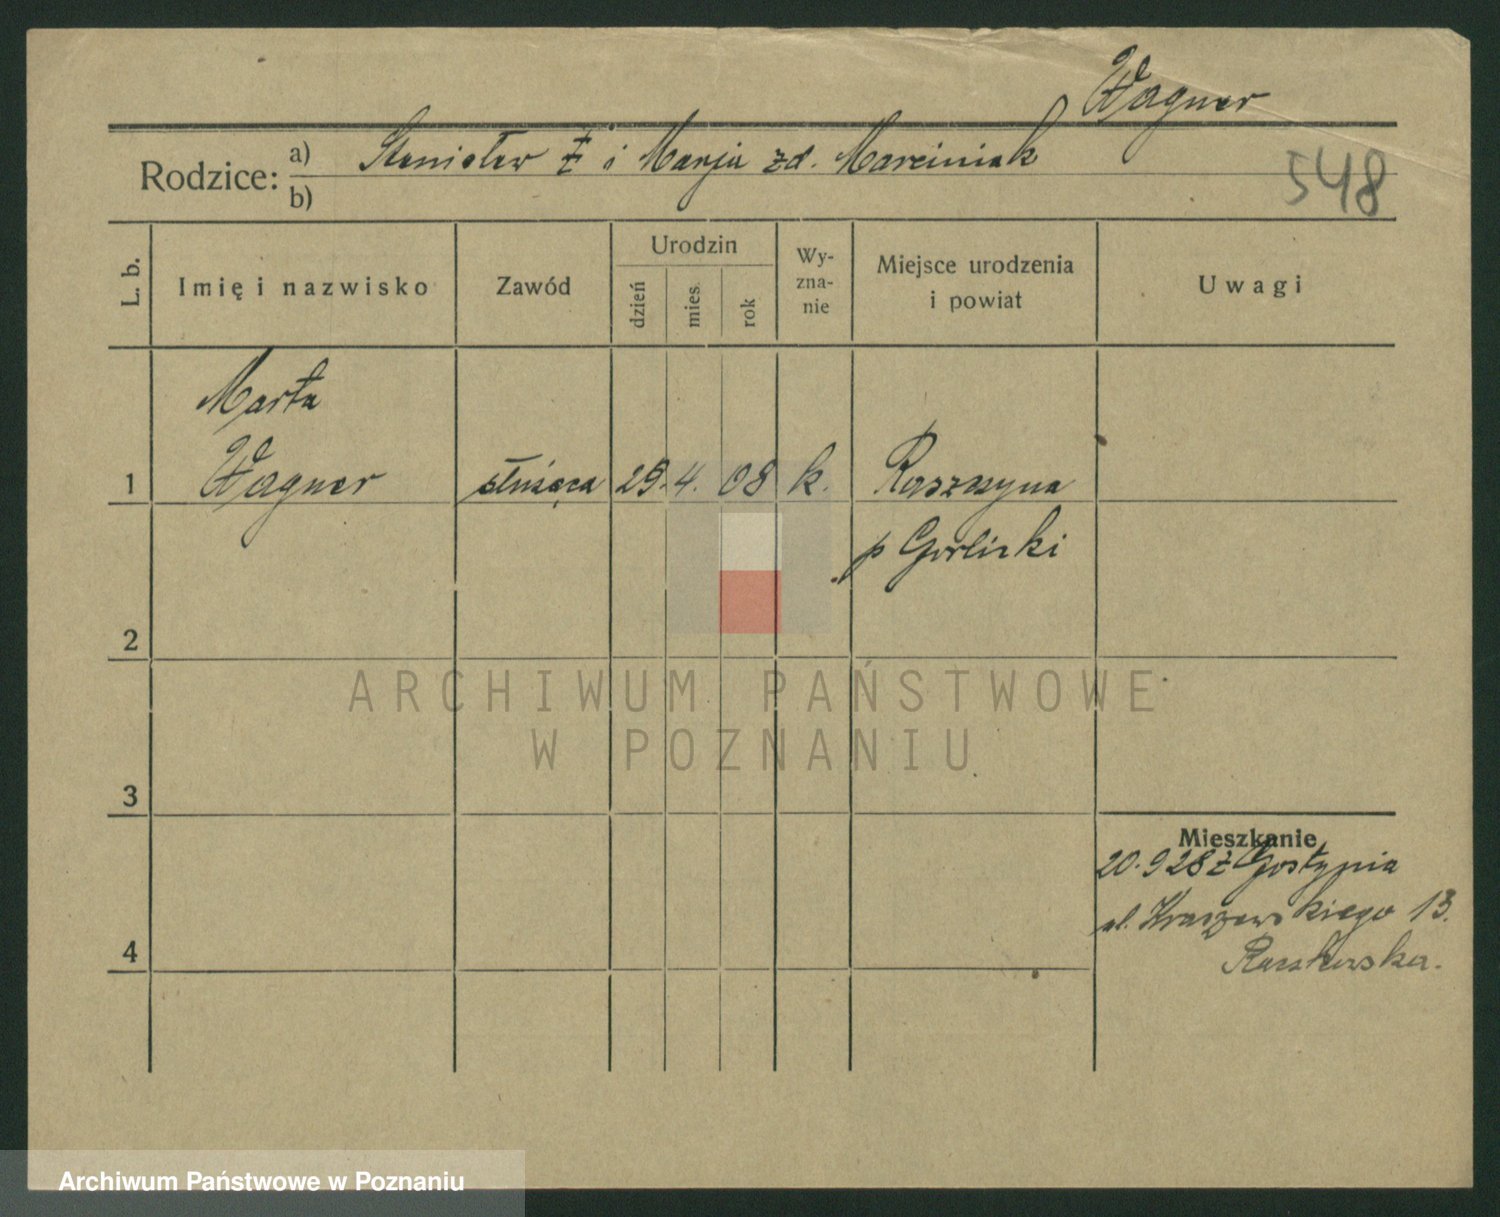 Wagner
Rodzice: a) Stanisław Ż i Marja zd. Marciniak
b)
548
L. b.
Imię i nazwisko
Zawód
Urodzin
dzień
mies.
rok
Wy-
zna-
nie
Miejsce urodzenia
i powiat
Uwagi
Marta
1 Wagner służąca 29. 4. 08 k. Raszczyna
p Gorlicki
2
ARCHIWUM PAŃSTWOWE
W POZNANIU
3
Mieszkanie
20.9 28 z Gostynia
ul. Kraszewskiego 13.
Raszkowska.
4
Archiwum Państwowe w Poznaniu